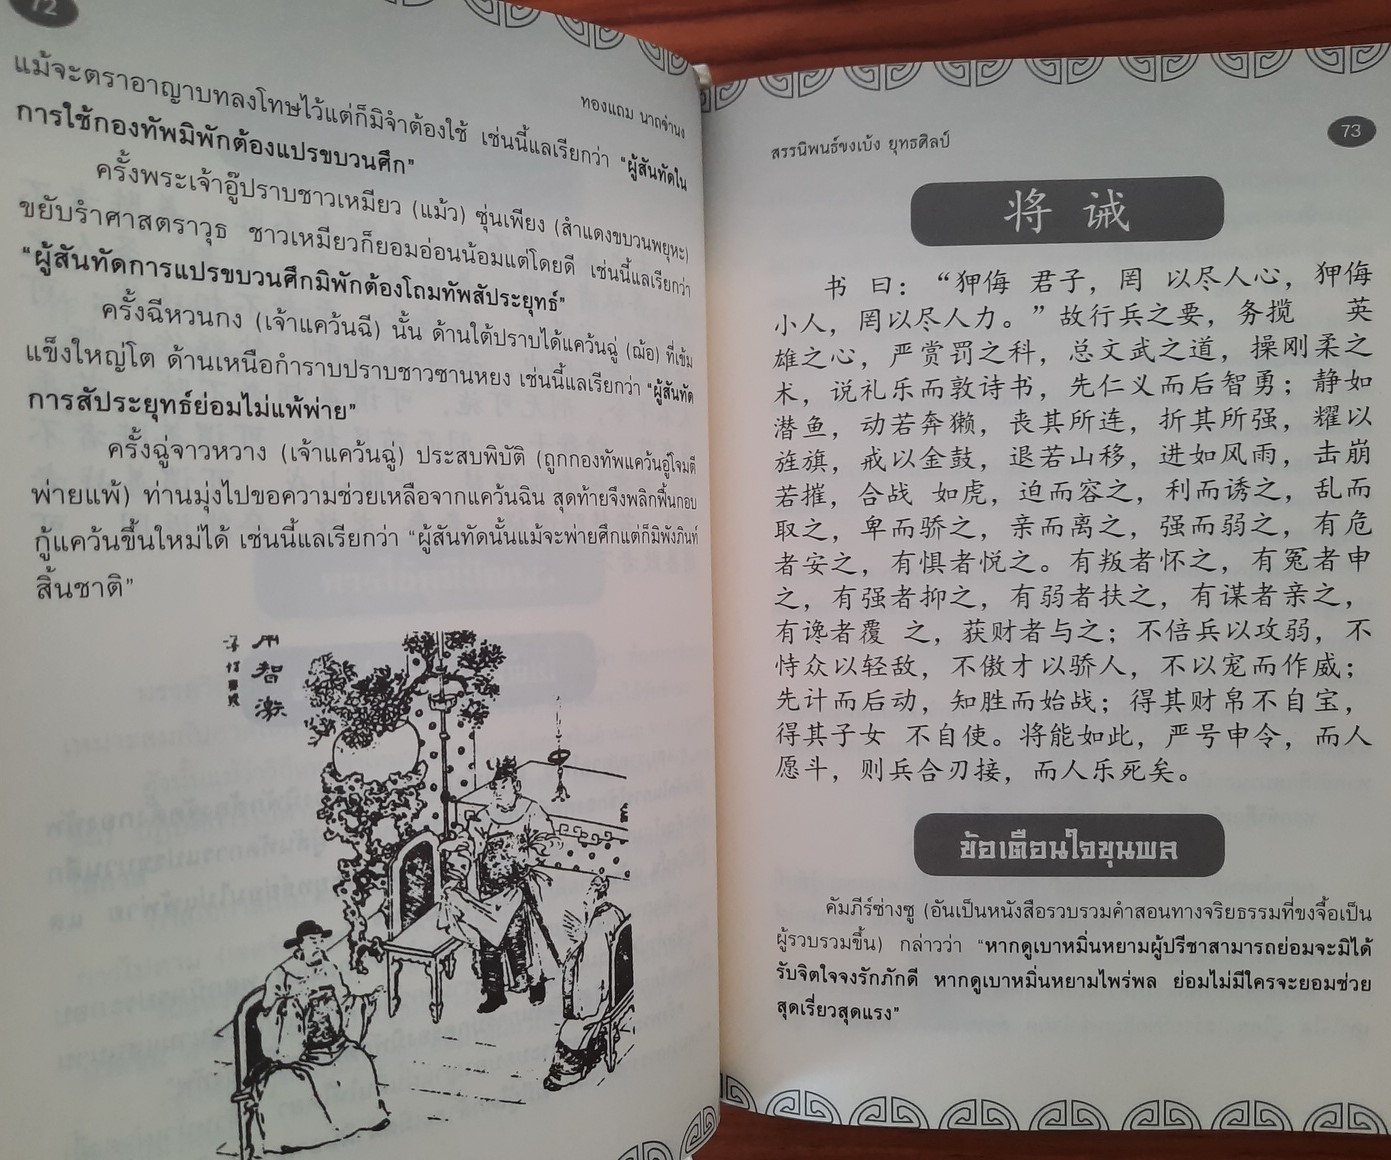 72
ทองแถม นาถจำนง
แม้จะตราอาญาบทลงโทษไว้แต่ก็มิจำต้องใช้ เช่นนี้แลเรียกว่า “ผู้สันทัดใน
การใช้กองทัพมิพักต้องแปรขบวนศึก”
ครั้งพระเจ้าอู๊ปราบชาวเหมียว (แม้ว) ซุ่นเพียง (สำแดงขบวนพยุหะ)
ขยับรำศาสตราวุธ ชาวเหมียวก็ยอมอ่อนน้อมแต่โดยดี เช่นนี้แลเรียกว่า
“ผู้สันทัดการแปรขบวนศึกมิพักต้องโถมทัพสัประยุทธ์”
ครั้งฉีหวนกง (เจ้าแคว้นฉี) นั้น ด้านใต้ปราบได้แคว้นฉู่ (ฌ้อ) ที่เข้ม
แข็งใหญ่โต ด้านเหนือกำราบปราบชาวซานหยง เช่นนี้แลเรียกว่า “ผู้สันทัด
การสัประยุทธ์ย่อมไม่แพ้พ่าย”
ครั้งฉู่จาวหวาง (เจ้าแคว้นฉู่) ประสบพิบัติ (ถูกกองทัพแคว้นอู๋โจมตี
พ่ายแพ้) ท่านมุ่งไปขอความช่วยเหลือจากแคว้นฉิน สุดท้ายจึงพลิกฟื้นกอบ
กู้แคว้นขึ้นใหม่ได้ เช่นนี้แลเรียกว่า “ผู้สันทัดนั้นแม้จะพ่ายศึกแต่ก็มิพังภินท์
สิ้นชาติ”
智激
สรรนิพนธ์ขงเบ้ง ยุทธศิลป์
73
将 诫
书 曰：“狎侮 君子，罔 以尽人心，狎侮
小人，罔以尽人力。”故行兵之要，务揽 英
雄之心，严赏罚之科，总文武之道，操刚柔之
术，说礼乐而敦诗书，先仁义而后智勇；静如
潜鱼，动若奔獭，丧其所连，折其所强，耀以
旌旗，戒以金鼓，退若山移，进如风雨，击崩
若摧，合战 如虎，迫而容之，利而诱之，乱而
取之，卑而骄之，亲而离之，强而弱之，有危
者安之，有惧者悦之。有叛者怀之，有冤者申
之，有强者抑之，有弱者扶之，有谋者亲之，
有谗者覆 之，获财者与之；不倍兵以攻弱，不
恃众以轻敌，不傲才以骄人，不以宠而作威；
先计而后动，知胜而始战；得其财帛不自宝，
得其子女 不自使。将能如此，严号申令，而人
愿斗，则兵合刃接，而人乐死矣。
ข้อเตือนใจขุนพล
คัมภีร์ซ่างซู (อันเป็นหนังสือรวบรวมคำสอนทางจริยธรรมที่ขงจื้อเป็น
ผู้รวบรวมขึ้น) กล่าวว่า “หากดูเบาหมิ่นหยามผู้ปรีชาสามารถย่อมจะมิได้
รับจิตใจจงรักภักดี หากดูเบาหมิ่นหยามไพร่พล ย่อมไม่มีใครจะยอมช่วย
สุดเรี่ยวสุดแรง”